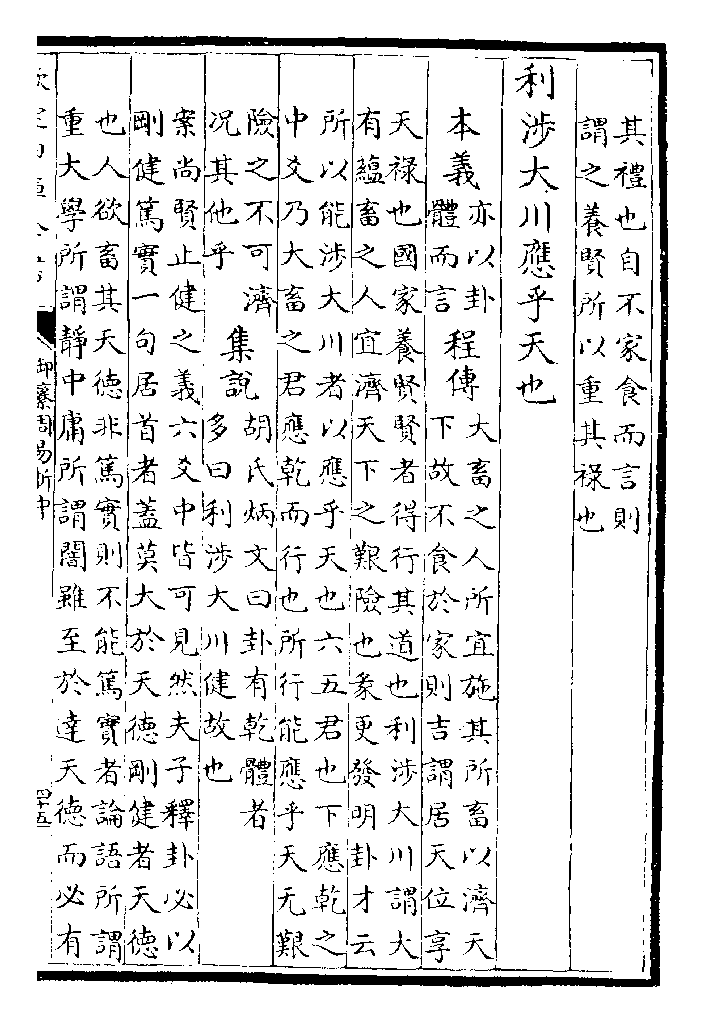 其禮也自不家食而言則
謂之養賢所以重其祿也
利涉大川應乎天也
本義 亦以卦
體而言 程傳 大畜之人所宜施其所畜以濟天
下故不食於家則吉謂居天位享
天祿也國家養賢賢者得行其道也利涉大川謂大
有蘊畜之人宜濟天下之艱險也彖更發明卦才云
所以能涉大川者以應乎天也六五君也下應乾之
中爻乃大畜之君應乾而行也所行能應乎天无艱
險之不可濟
况其他乎 集說 胡氏炳文曰卦有乾體者
多曰利涉大川健故也
案尚賢止健之義六爻中皆可見然夫子釋卦必以
剛健篤實一句居首者蓋莫大於天德剛健者天德
也人欲畜其天德非篤實則不能篤實者論語所謂
重大學所謂靜中庸所謂闇雖至於達天德而必有
御纂周易折中
四十五